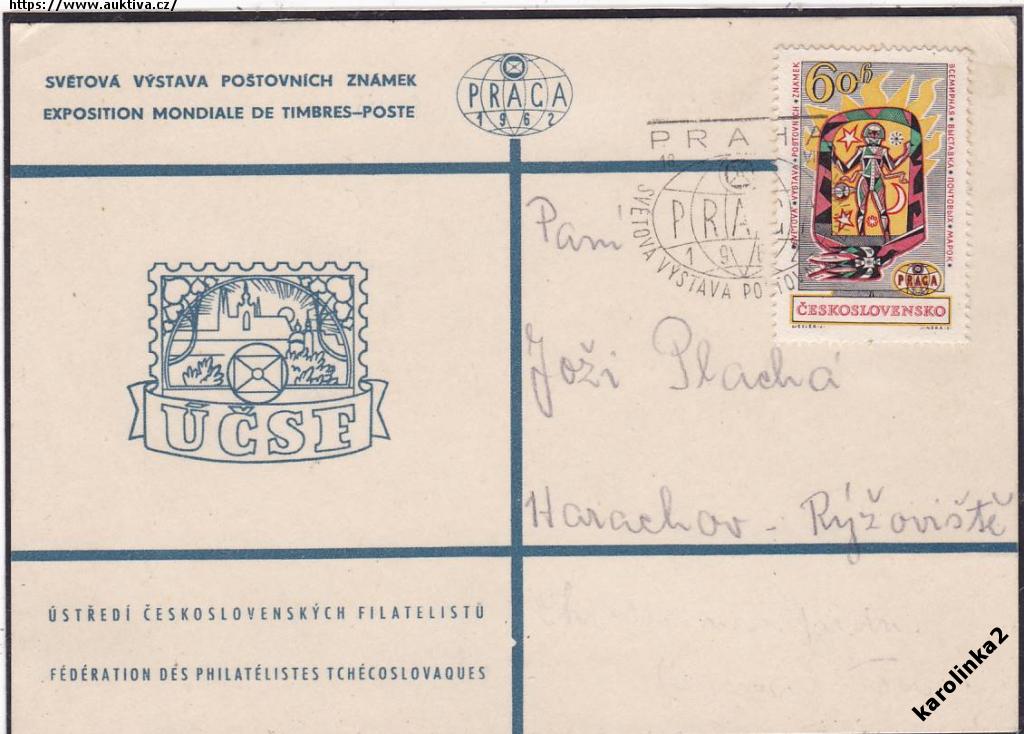 https://www.auktiva.cz/
SVĚTOVÁ VÝSTAVA POŠTOVNÍCH ZNÁMEK
EXPOSITION MONDIALE DE TIMBRES–POSTE
PRAGA
1962
60h
SVĚTOVÁ VÝSTAVA POŠTOVNÍCH ZNÁMEK
ВСЕМИРНАЯ ВЫСТАВКА ПОЧТОВЫХ МАРОК
PRAGA
ČESKOSLOVENSKO
PRAHA
PRA
1962
SVĚTOVÁ VÝSTAVA POŠTOV
Paní
Joži Plachá
Harachov - Rýžoviště
ÚČSF
ÚSTŘEDÍ ČESKOSLOVENSKÝCH FILATELISTŮ
FÉDÉRATION DES PHILATÉLISTES TCHÉCOSLOVAQUES
karolinka2